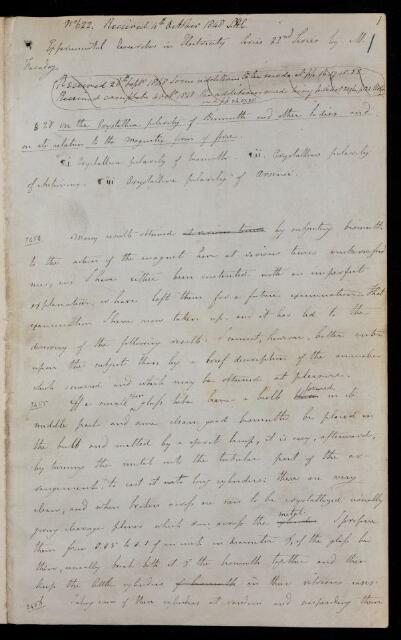 No 622. Received 4th October 1848 1
Experimental Researches in Electricity Series 22nd Series by M.
Faraday
Received 28th Sept 1848
§ 28 on the Crystalline polarity of Bismuth and other bodies and
on its relation to the Magnetic form of force.
¶ i Crystalline polarity of bismuth. ¶ ii. Crystalline polarity
of Antimony. ¶ iii Crystalline polarity of Arsenic.
2454 Many results obtained at various times by subjecting bismuth
to the action of the magnet have at various times embarrassed
me, and I have either been contented with an imperfect
explanation, or have left them for a future examination: that
examination I have now taken up, and it has led to the
discovery of the following results. I cannot, however, better enter
upon the subject than by a brief description of the anomalies
which occurred and which may be obtained at pleasure.
2455 If a small open glass tube have a bulb formed in its
middle part and some clean good bismuth be placed in
the bulb and melted by a spirit lamp, it is easy, afterwards,
by turning the metal into the tubular part of the ar-
rangement to cast it into long cylinders: these are very
clean, and when broken are seen to be crystallized, usually
giving cleavage planes which run across the metal. I prepare
them from 0.05 to 0.1 of an inch in diameter &, if the glass be
thin, usually break both it & the bismuth together and then
keep the little cylinders in their vitreous cases.
2456 Taking some of these cylinders at random and suspending them